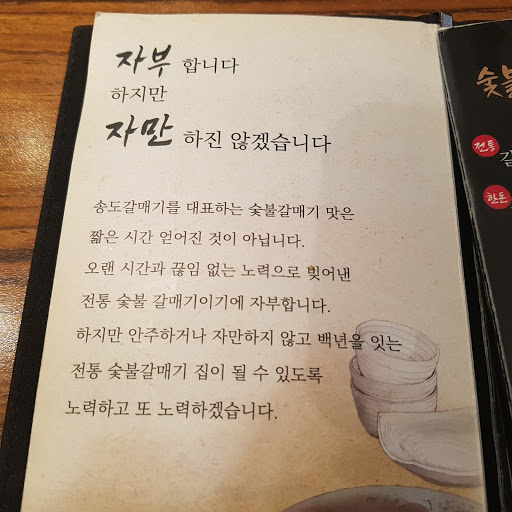 자부 합니다
하지만
자만 하진 않겠습니다
송도갈매기를 대표하는 숯불갈매기 맛은
짧은 시간 얻어진 것이 아닙니다.
오랜 시간과 끊임 없는 노력으로 빚어낸
전통 숯불 갈매기이기에 자부합니다.
하지만 안주하거나 자만하지 않고 백년을 잇는
전통 숯불갈매기 집이 될 수 있도록
노력하고 또 노력하겠습니다.
숯불
전통
한돈